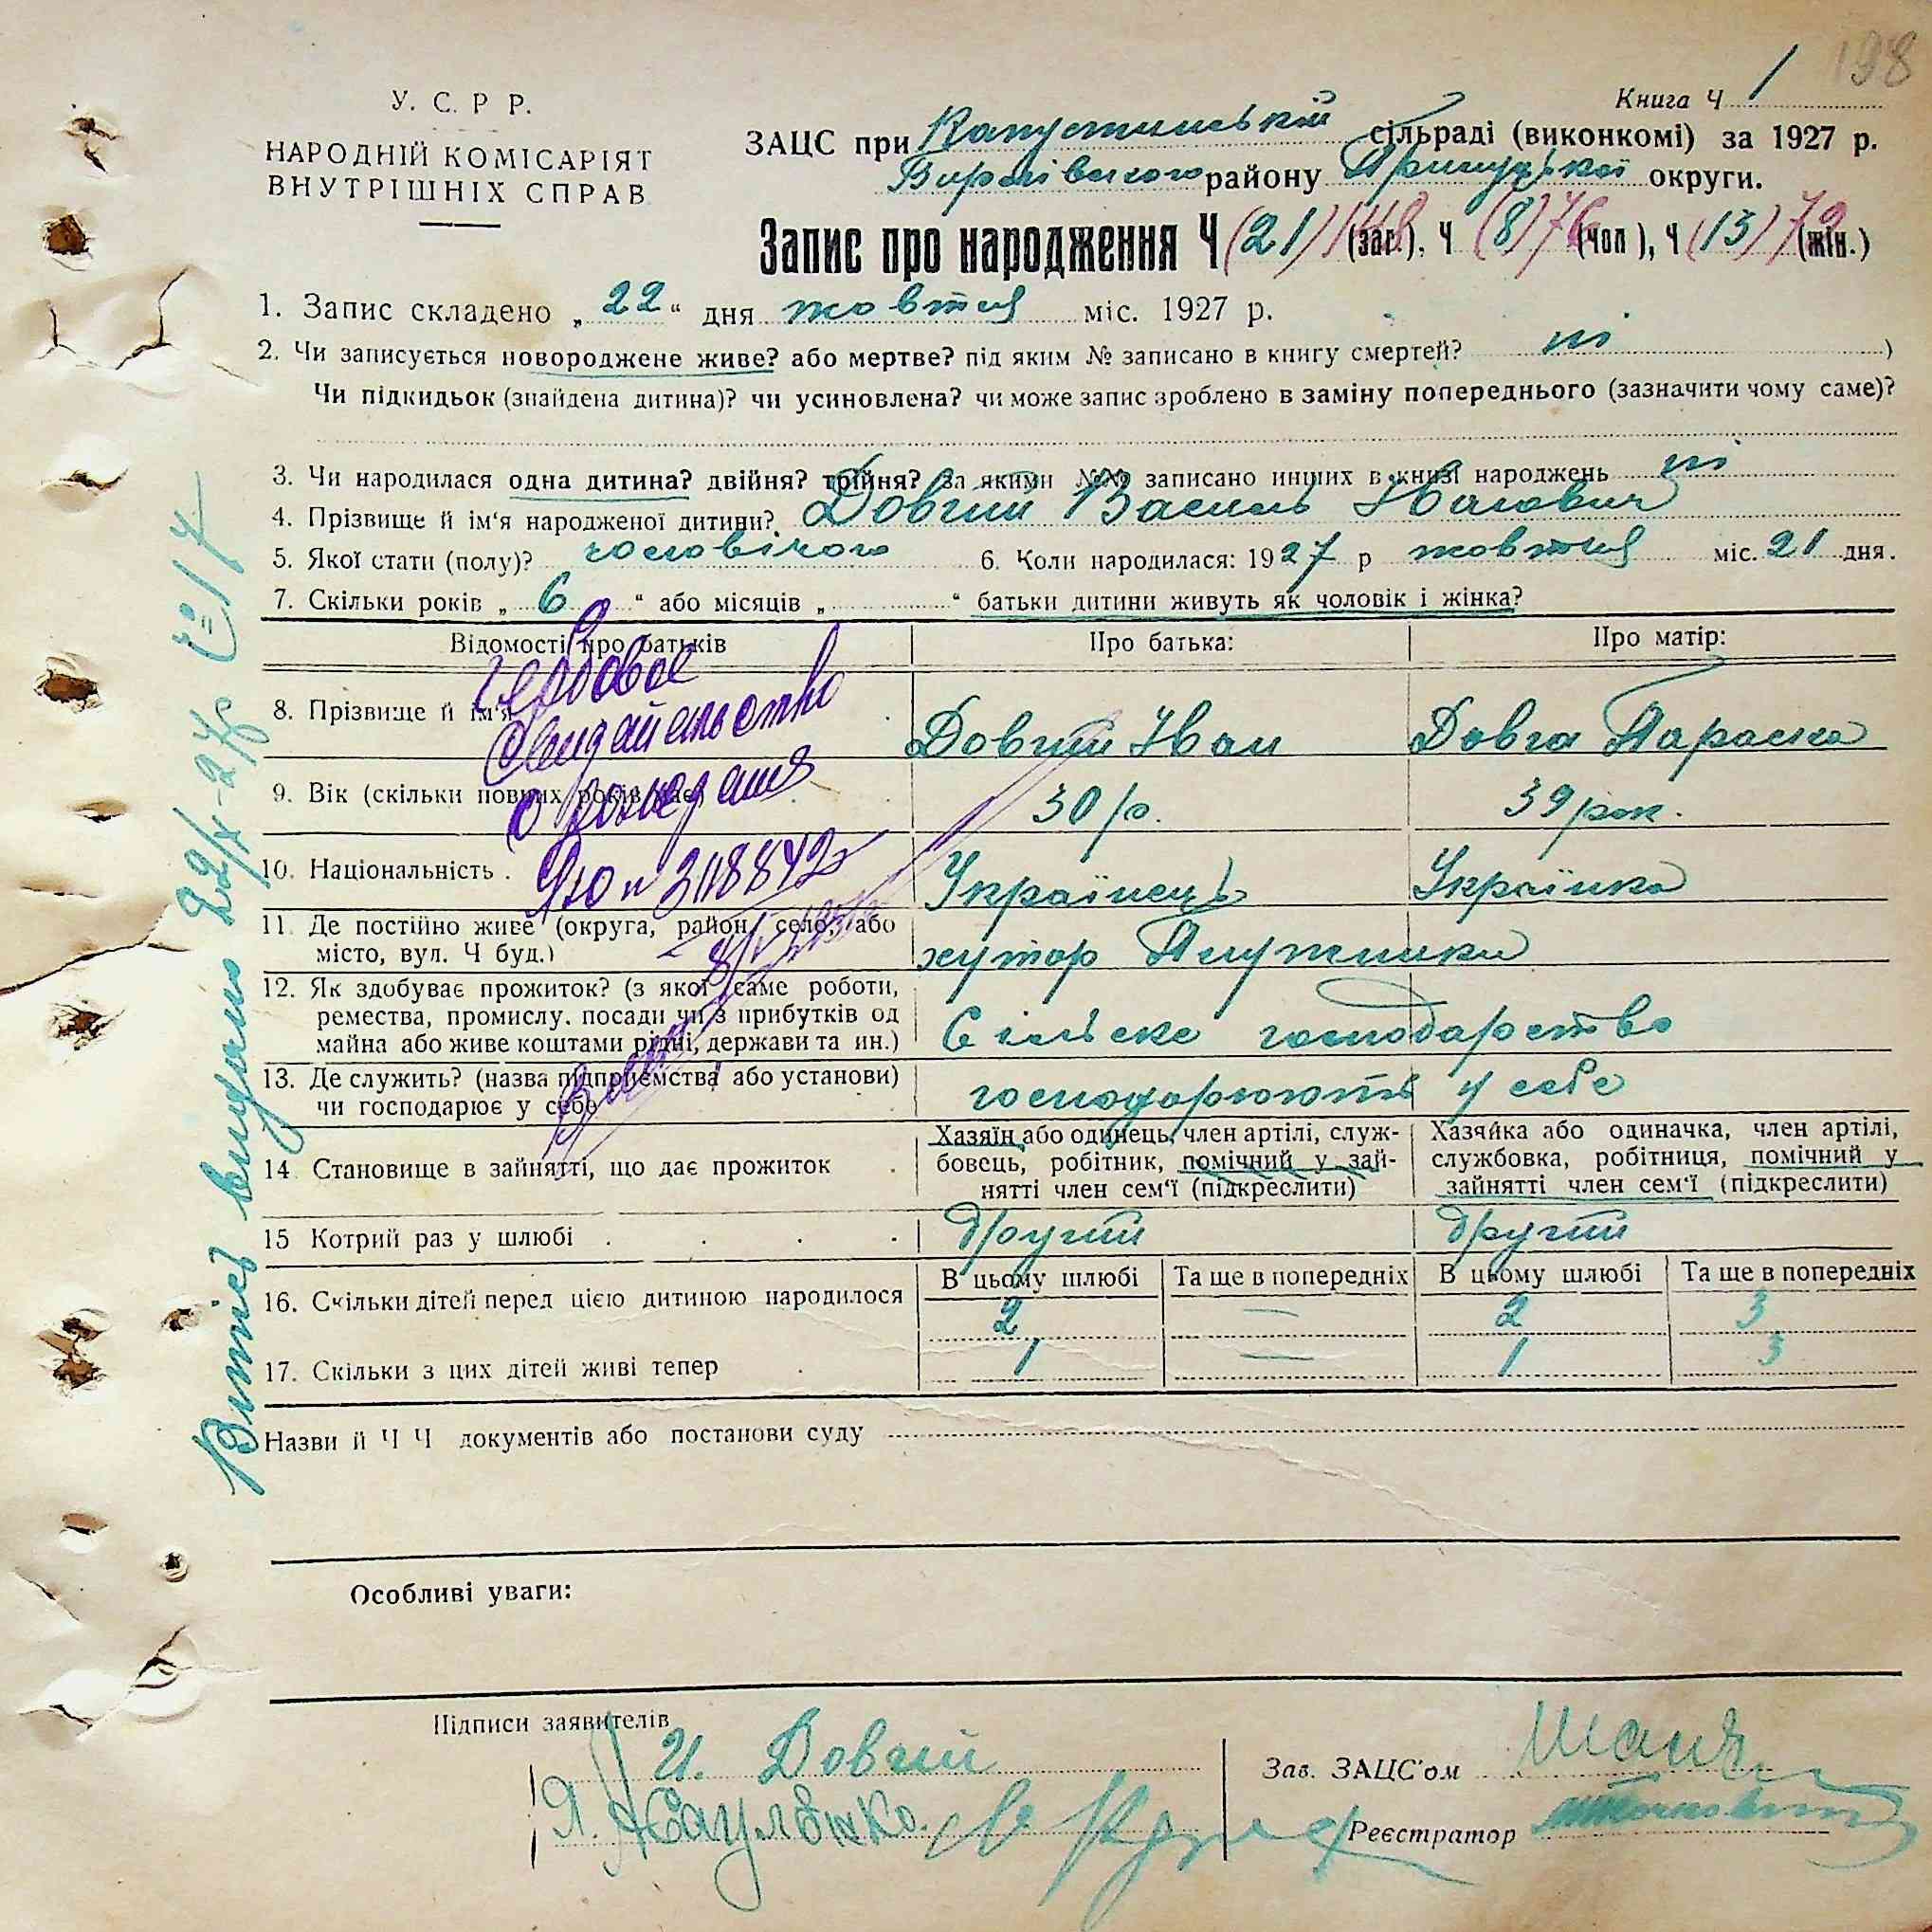 198
У. С. Р Р.
НАРОДНІЙ КОМІСАРІЯТ
ВНУТРІШНІХ СПРАВ
Книга Ч 1
ЗАЦС при Капустинській сільраді (виконкомі) за 1927 р.
району Прилуцької округи.
Запис про народження Ч (21) 148 (заг.), Ч (8) 76 (чол), Ч (13) 72 (жін.)
1. Запис складено „ 22 “ дня жовтня міс. 1927 р.
2. Чи записується новороджене живе? або мертве? під яким № записано в книгу смертей? ні )
Чи підкидьок (знайдена дитина)? чи усиновлена? чи може запис зроблено в заміну попереднього (зазначити чому саме)?
3. Чи народилася одна дитина? двійня? трійня? за якими №№ записано инших в книзі народжень ні
4. Прізвище й ім‘я народженої дитини? Довгий Василь Іванович
5. Якої стати (полу)? чоловічого 6. Коли народилася: 1927 р жовтня міс. 21 дня.
7. Скільки років „ 6 “ або місяців „ “ батьки дитини живуть як чоловік і жінка?
Відомості про батьків Про батька: Про матір:
8. Прізвище й ім‘я Довгий Іван Довга Параска
9. Вік (скільки повних років має) 30 р. 39 рок.
10. Національність . Українець Українка
11. Де постійно живе (округа, район, село, або
місто, вул. Ч буд.) хутор Плужники
12. Як здобуває прожиток? (з якої саме роботи,
ремества, промислу. посади чи з прибутків од
майна або живе коштами рідні, держави та ин.) Сільське господарство
13. Де служить? (назва підприємства або установи)
чи господарює у себе господарюють у себе
14. Становище в зайнятті, що дає прожиток .
Хазяїн або одинець, член артілі, служ-
бовець, робітник, помічний у зай-
нятті член сем‘ї (підкреслити)
Хазяйка або одиначка, член артілі,
службовка, робітниця, помічний у
зайнятті член сем‘ї (підкреслити)
15 Котрий раз у шлюбі . . . . другий другий
В цьому шлюбі Та ще в попередніх В цьому шлюбі Та ще в попередніх
16. Скільки дітей перед цією дитиною народилося 2 — 2 3
17. Скільки з цих дітей живі тепер . 1 — 1 3
Назви й Ч Ч документів або постанови суду
Особливі уваги:
Підписи заявителів
И. Довгий
Зав. ЗАЦС'ом
Реєстратор
Витяг видано 22/X-27р
гербовое
свидетельство
о рождении
ЯЮ № 3118842